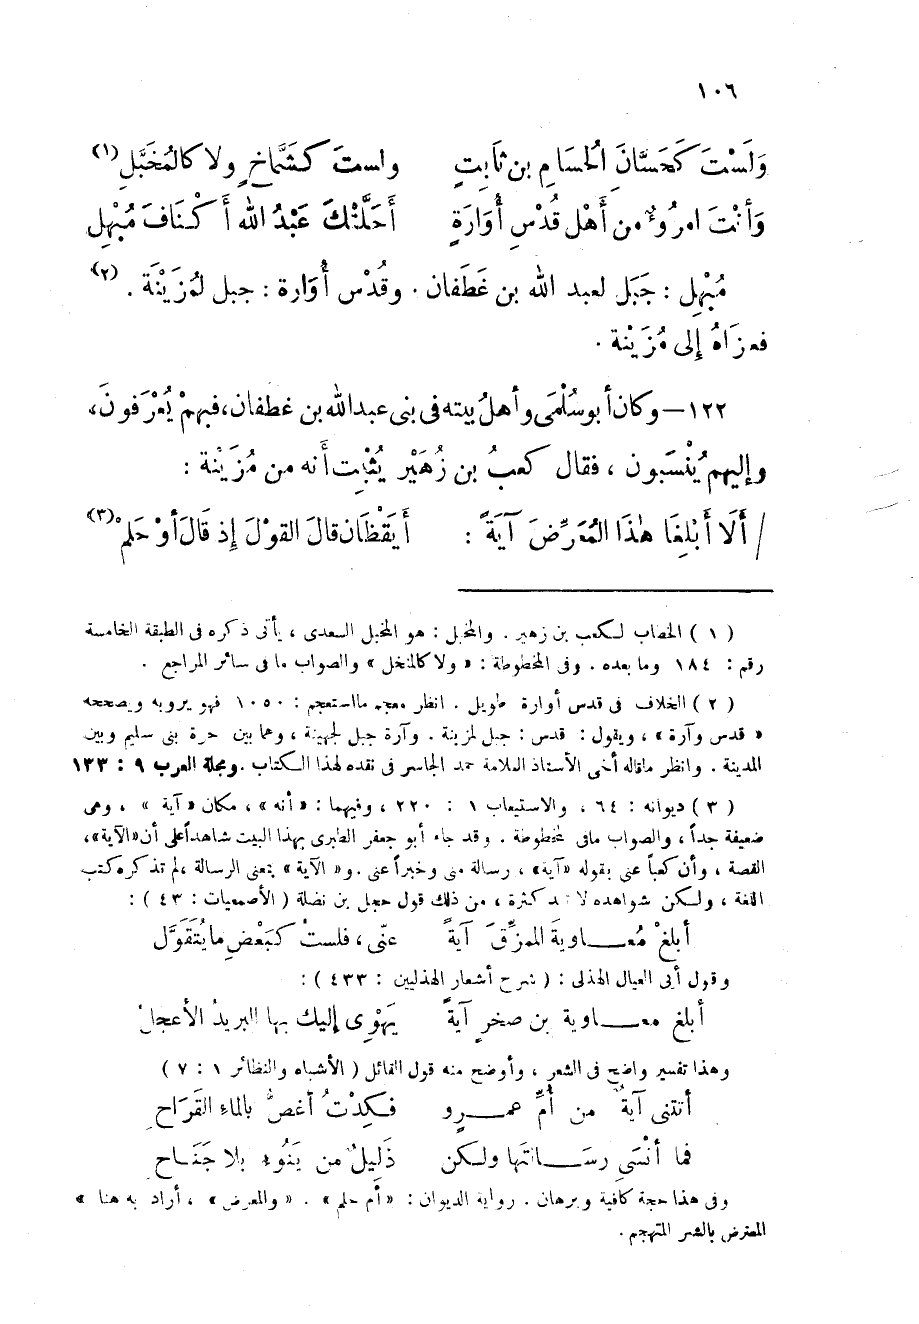 ١٠٦
وَلَسْتَ كَحَسَّانَ الحُسَامِ بن ثابتٍ ولستَ كَشَمَّاخٍ ولا كالمُخَبَّلِ (١)
وَأَنْتَ امرُؤٌ من أَهْلِ قُدْسِ أُوَارَةٍ أَحَلَّتْكَ عَبْدُ الله أَكْنَافَ مُبْهِلِ
مُبْهِل : جَبَل لعبد الله بن غَطَفان . وقُدْس أُوَارة : جبل لمُزَيْنَة . (٢)
فعزَاهُ إلى مُزَيْنة .
١٢٢ — وكان أبو سُلْمَى وأهلُ بيته فى بنى عبد الله بن غطفان ، فبهمْ يُعْرَفونَ ،
وإليهم يُنْسَبون ، فقال كعبُ بن زُهَيْر يُثْبِت أنه من مُزَيْنة :
/ أَلَا أَبْلِغَا هٰذَا المُعَرِّضَ آيَةً : أَيَقْظَان قالَ القوْلَ إذ قَالَ أوْ حَلَمْ (٣)
( ١ ) الخطاب لكعب بن زهير . والمخبل : هو المخبل السعدى ، يأتى ذكره فى الطبقة الخامسة
رقم : ١٨٤ وما بعده . وفى المخطوطة : « ولا كالمنخل » والصواب ما فى سائر المراجع .
( ٢ ) الخلاف فى قدس أوارة طويل . انظر معجم ما استعجم : ١٠٥٠ فهو يرويه ويصححه
« قدس وآرة » ، ويقول : قدس : جبل لمزينة . وآرة جبل لجهينة ، وهما بين حرة بنى سليم وبين
المدينة . وانظر ما قاله أخى الأستاذ العلامة حمد الجاسر فى نقده لهذا الكتاب . ومجلة العرب ٩ : ١٣٣
( ٣ ) ديوانه : ٦٤ ، والاستيعاب ١ : ٢٢٠ ، وفيهما : « أنه » ، مكان « آية » ، وهى
ضعيفة جداً ، والصواب ما فى المخطوطة . وقد جاء أبو جعفر الطبرى بهذا البيت شاهداً على أن « الآية » ،
القصة ، وأن كعباً عنى بقوله « آية » ، رسالة منى وخبراً عنى . و « الآية » بمعنى الرسالة ، لم تذكره كتب
اللغة ، ولكن شواهده لا تعد كثرة ، من ذلك قول حجل بن نضلة ( الأصمعيات : ٤٣ ) :
أبلغْ مُعـاويةَ الممزِّقَ آيةً عنّى ، فلستُ كبَعْضِ ما يُتَقَوَّل
وقول أبى العيال الهذلى : ( شرح أشعار الهذليين : ٤٣٣ ) :
أبلغ معـاوية بن صخرٍ آيةً يَهْوِى إليك بها البريدُ الأعجلُ
وهذا تفسير واضح فى الشعر ، وأوضح منه قول القائل ( الأشباه والنظائر ١ : ٧ )
أتتنى آيةٌ من أُمِّ عمـرٍو فكِدْتُ أغصُّ بالماءِ القَرَاحِ
فما أنْسَى رسَـالتَها ولكن ذَلِيلٌ من يَنُوءُ بلا جَنَـاحِ
وفى هذا حجة كافية وبرهان . رواية الديوان : « أم حلم » . « والمعرض » ، أراد به هنا «
المعترض بالشر المتهجم .